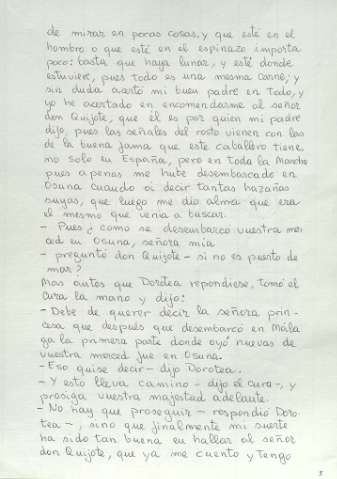 de mirar en pocas cosas, y que esté en el
hombro o que esté en el espinazo importa
poco: basta que haya lunar, y esté donde
estuviere, pues todo es una mesma carne; y
sin duda acertó mi buen padre en todo, y
yo he acertado en encomendarme al señor
don Quijote, que él es por quien mi padre
dijo, pues las señales del rosto vienen con las
de la buena fama que este caballero tiene,
no solo en España, pero en toda la Mancha
pues apenas me hube desembarcado en
Osuna cuando oí decir tantas hazañas
suyas, que luego me dio alma que era
el mesmo que venía a buscar.
- Pues ¿como se desembarcó vuestra mer
ced en Osuna, señora mía
- preguntó don Quijote - si no es puerto de
mar?
Mas antes que Dorotea repondiese, tomó el
Cura la mano y dijo:
- Debe de querer decir la señora prin-
cesa que después que desembarcó en Mála
ga la primera parte donde oyó nuevas de
vuestra merced fue en Osuna.
- Eso quise decir - dijo Dorotea.
- Y esto lleva camino - dijo el Cura -, y
prosiga vuestra majestad adelante.
- No hay que proseguir - respondió Doro
tea -, sino que finalmente mi suerte
ha sido tan buena en hallar al señor
don Quijote, que ya me cuento y tengo